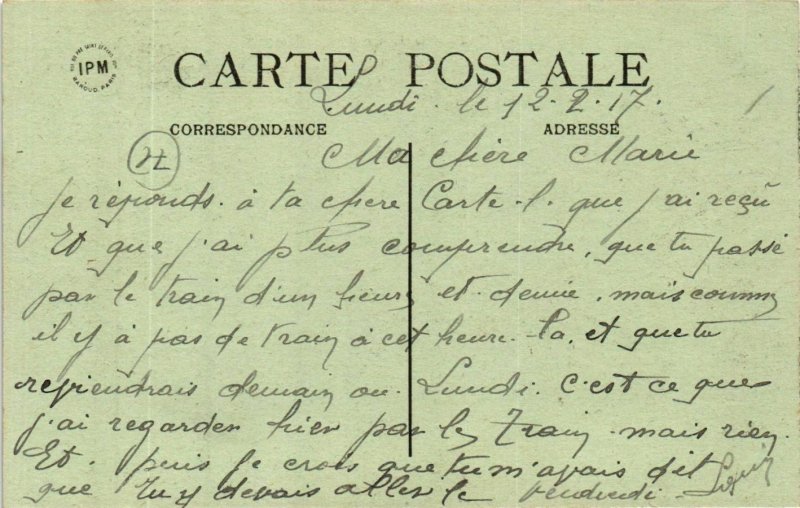 RUE DU PRÉ SAINT GERVAIS
IPM
BAROUD, PARIS
CARTE POSTALE
Lundi. le 12.2.17.
CORRESPONDANCE
ADRESSE
Ma chère Marie
je réponds. à ta chere Carte-l. que j'ai reçu
Et que j'ai plus comprendre, que tu passé
par le train d'un heure et demie, mais comme
il y à pas de train à cet heure-la, et que tu
reviendrais demain ou Lundi. c'est ce que
j'ai regarder hier par le Train. mais rien.
Et. puis je crois que tu m'avais dit
que Tu y devais aller le vendredi.